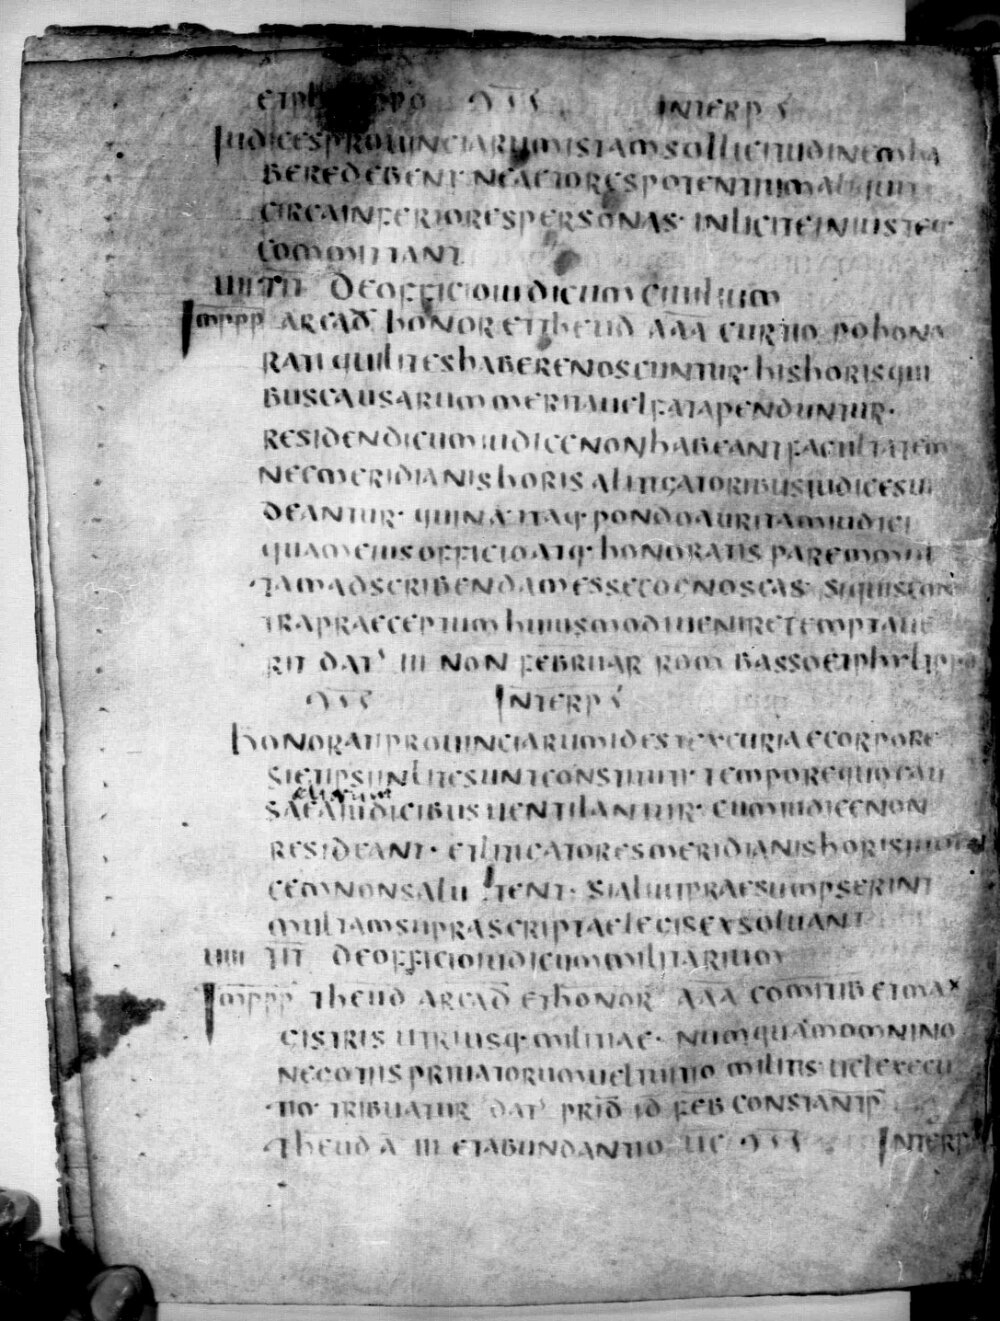 INTERPS
IUDICESPROUINCIARUMISTAMSOLLICITUDINEMHA
BEREDEBENT NEACTORESPOTENTIUMALIQUIT
CIRCAINFERIORESPERSONAS· INLICITEINIUSTEQ·
COMMITTANT
IIII TIT DEOFFICIOIUDICUMCIUILIUM
IMPPP ARCAD HONOR ETTHEUD AAA CURTIO PO HONO
RATI QUILITESHABERENOSCUNTUR· HISHORISQUI
BUSCAUSARUMMERITAUELFATAPENDUNTUR·
RESIDENDICUMIUDICENONHABEANTFACULTATEM
NECMERIDIANISHORIS ALITIGATORIBUSIUDICESUI
DEANTUR· QUINA ITAQ· PONDOAURITAMIUDICI
QUAMEIUSOFFICIOATQ· HONORATIS PAREMMUL
TAMADSCRIBENDAMESSECOGNOSCAS· SIQUISCON
TRAPRAECEPTUMHUIUSMODIUENIRETEMPTAUE
RIT DAT III NON FEBRUAR ROM BASSOETPHYLIPPO
INTERPS
HONORATIPROUINCIARUMIDESTEXCURIAECORPORE
SIETIPSIINLITESUNTCONSTITUTI· TEMPOREQUOCAU
SAEAIUDICIBUSUENTILANTUR· CUMIUDICENON
RESIDEANT· ETLITIGATORESMERIDIANISHORISIUDI
CEMNONSALUTENT· SIALIUTPRAESUMPSERINT
MULTAMSUPRASCRIPTAELEGISEXSOLUANT
IIIII TIT DEOFFICIOIUDICUMMILITARIUM
IMPPP THEUD ARCAD ETHONOR AAA COMITIB ETMA
GISTRIS UTRIUSQ·MILITIAE· NUMQUAMOMNINO
NEGOTIISPRIUATORUMUELTUITIO MILITIS UELEXECU
TIO· TRIBUATUR DAT PRID ID FEB CONSTANTP
THEUD A III ETABUNDANTIO UC INTERP